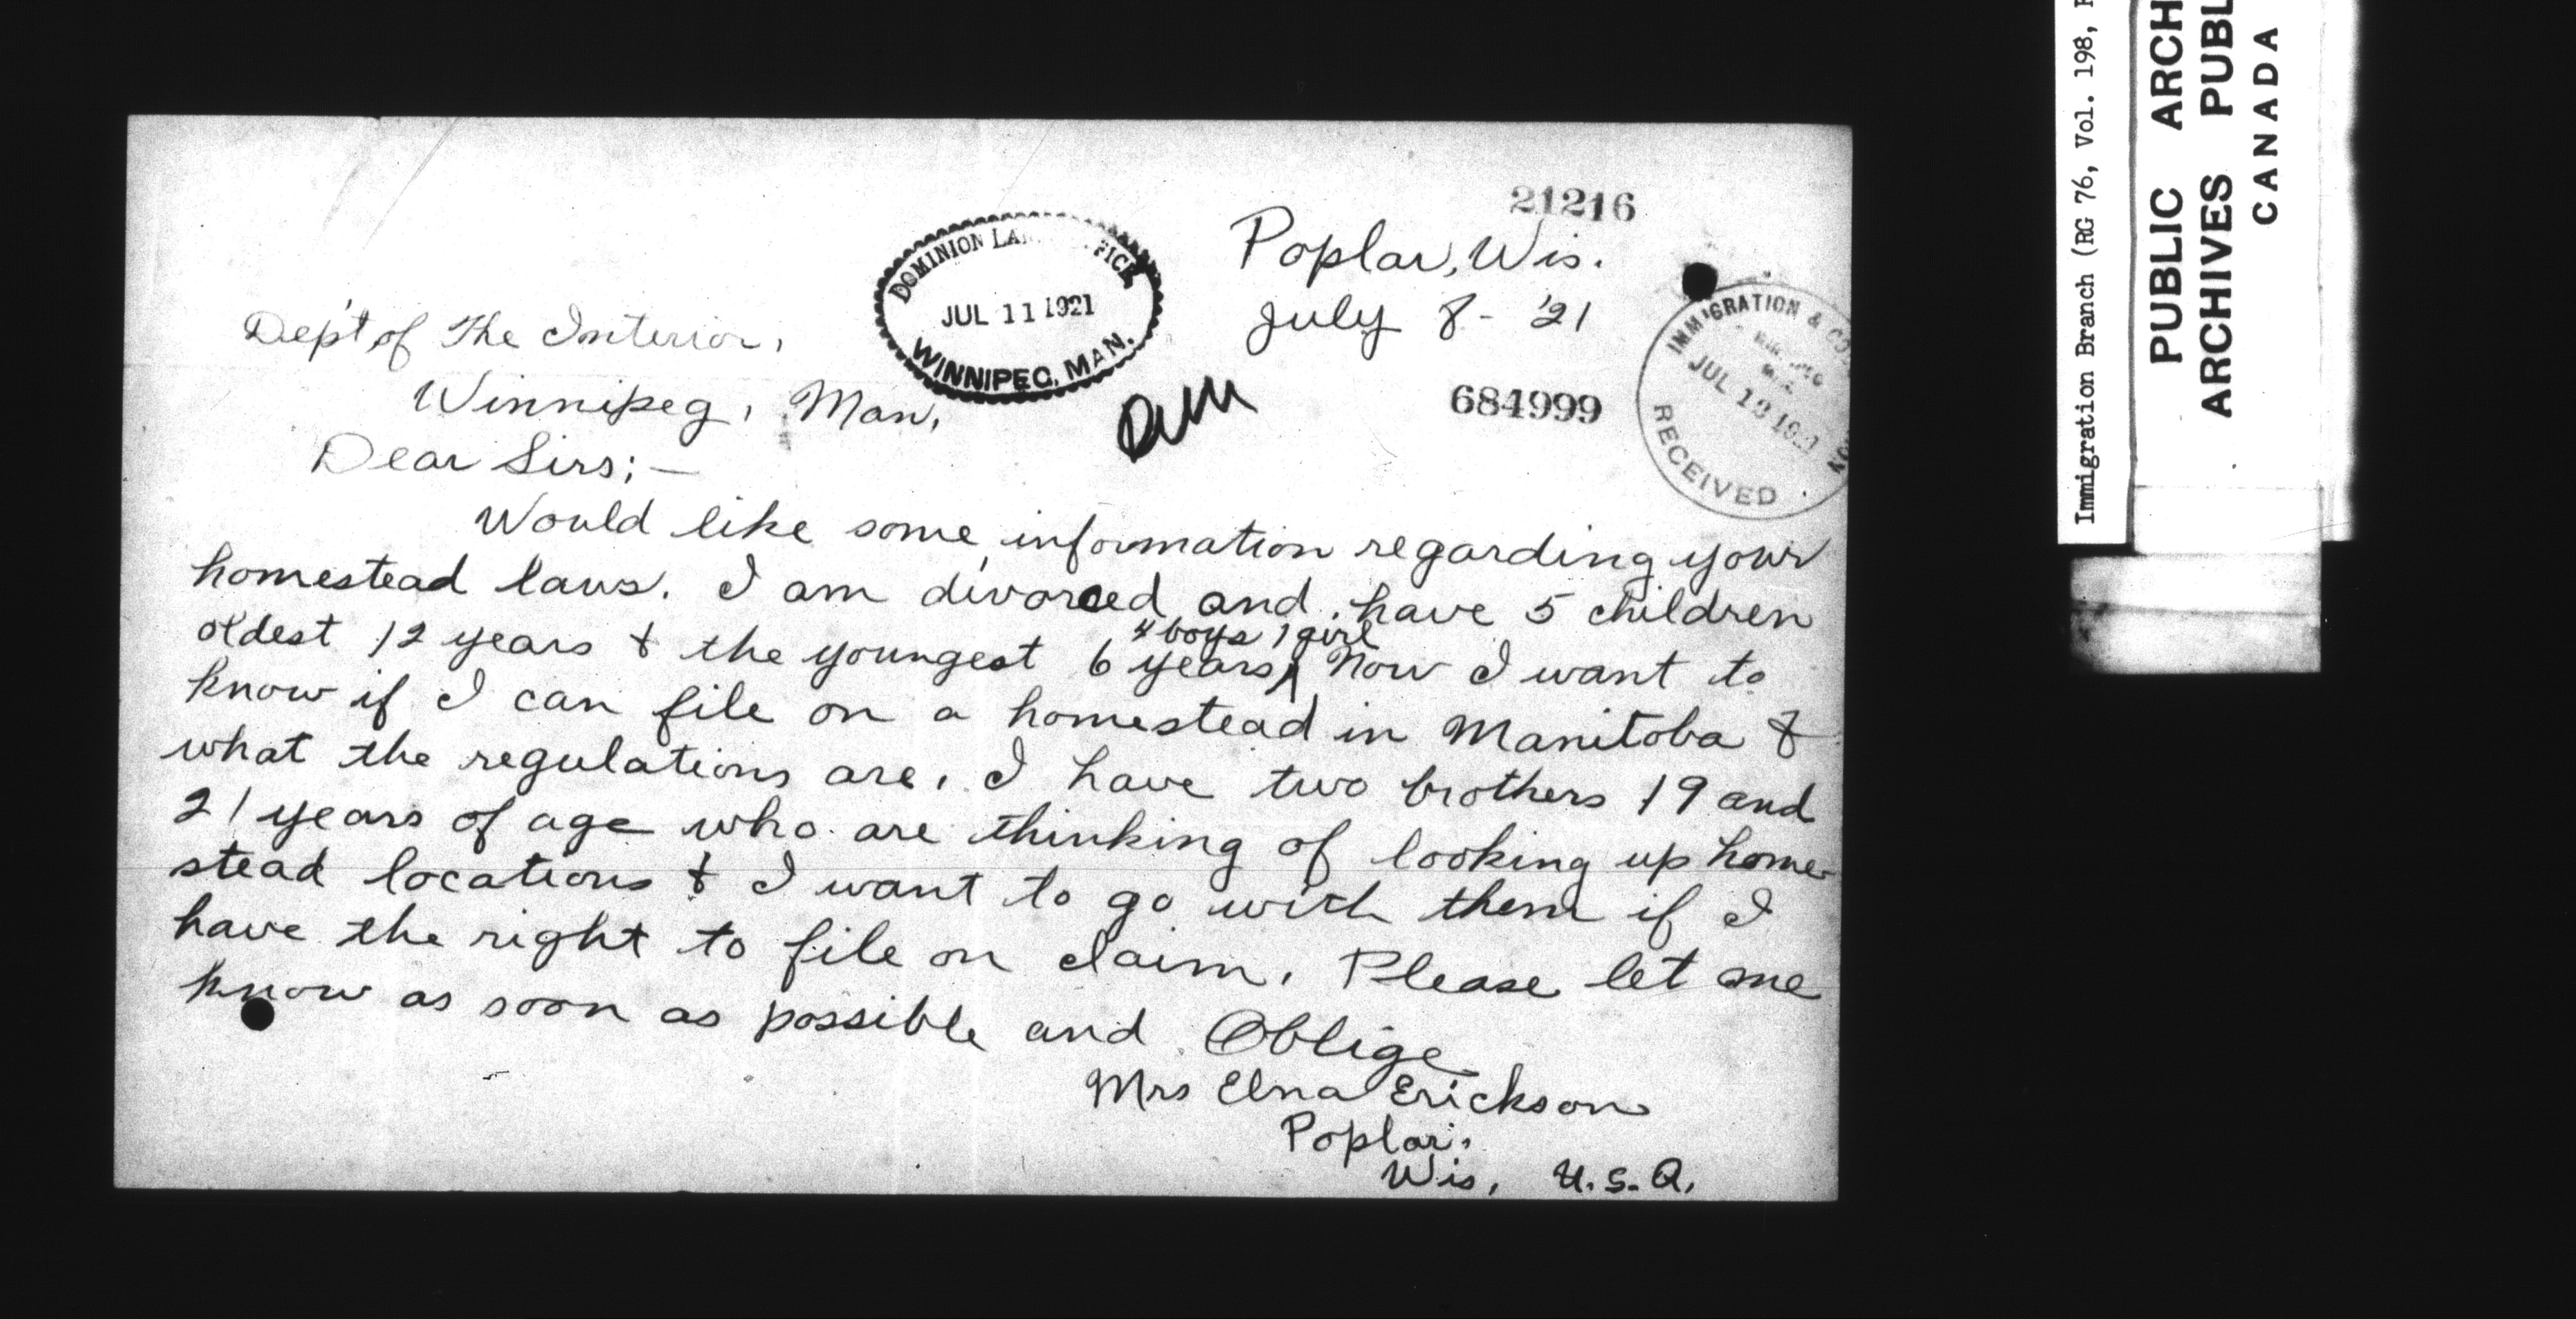 21216
Poplar, Wis.
July 8 - '21
DOMINION
JUL 11 1921
WINNIPEG, MAN.
684999
IMMIGRATION &
JUL
RECEIVED
Dep't of The Interior,
Winnipeg, Man,
Dear Sirs; —
Would like some information regarding your
homestead laws. I am divorced and have 5 children
4 boys 1 girl
oldest 12 years & the youngest 6 years, Now I want to
know if I can file on a homestead in Manitoba &
what the regulations are. I have two brothers 19 and
21 years of age who are thinking of looking up home-
stead locations & I want to go with them if I
have the right to file on claim. Please let me
know as soon as possible and Oblige
Mrs Elna Erickson
Poplar,
Wis, U.S.A.
Immigration Branch (RG 76, Vol. 198,
PUBLIC ARCH
ARCHIVES PUBL
CANADA